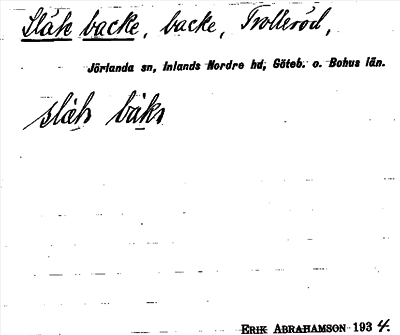 Släk backe, backe, Trolleröd,
Jörlanda sn, Inlands Nordre hd, Göteb. o. Bohus län.
slæk bàkə
ERIK ABRAHAMSON 1934.